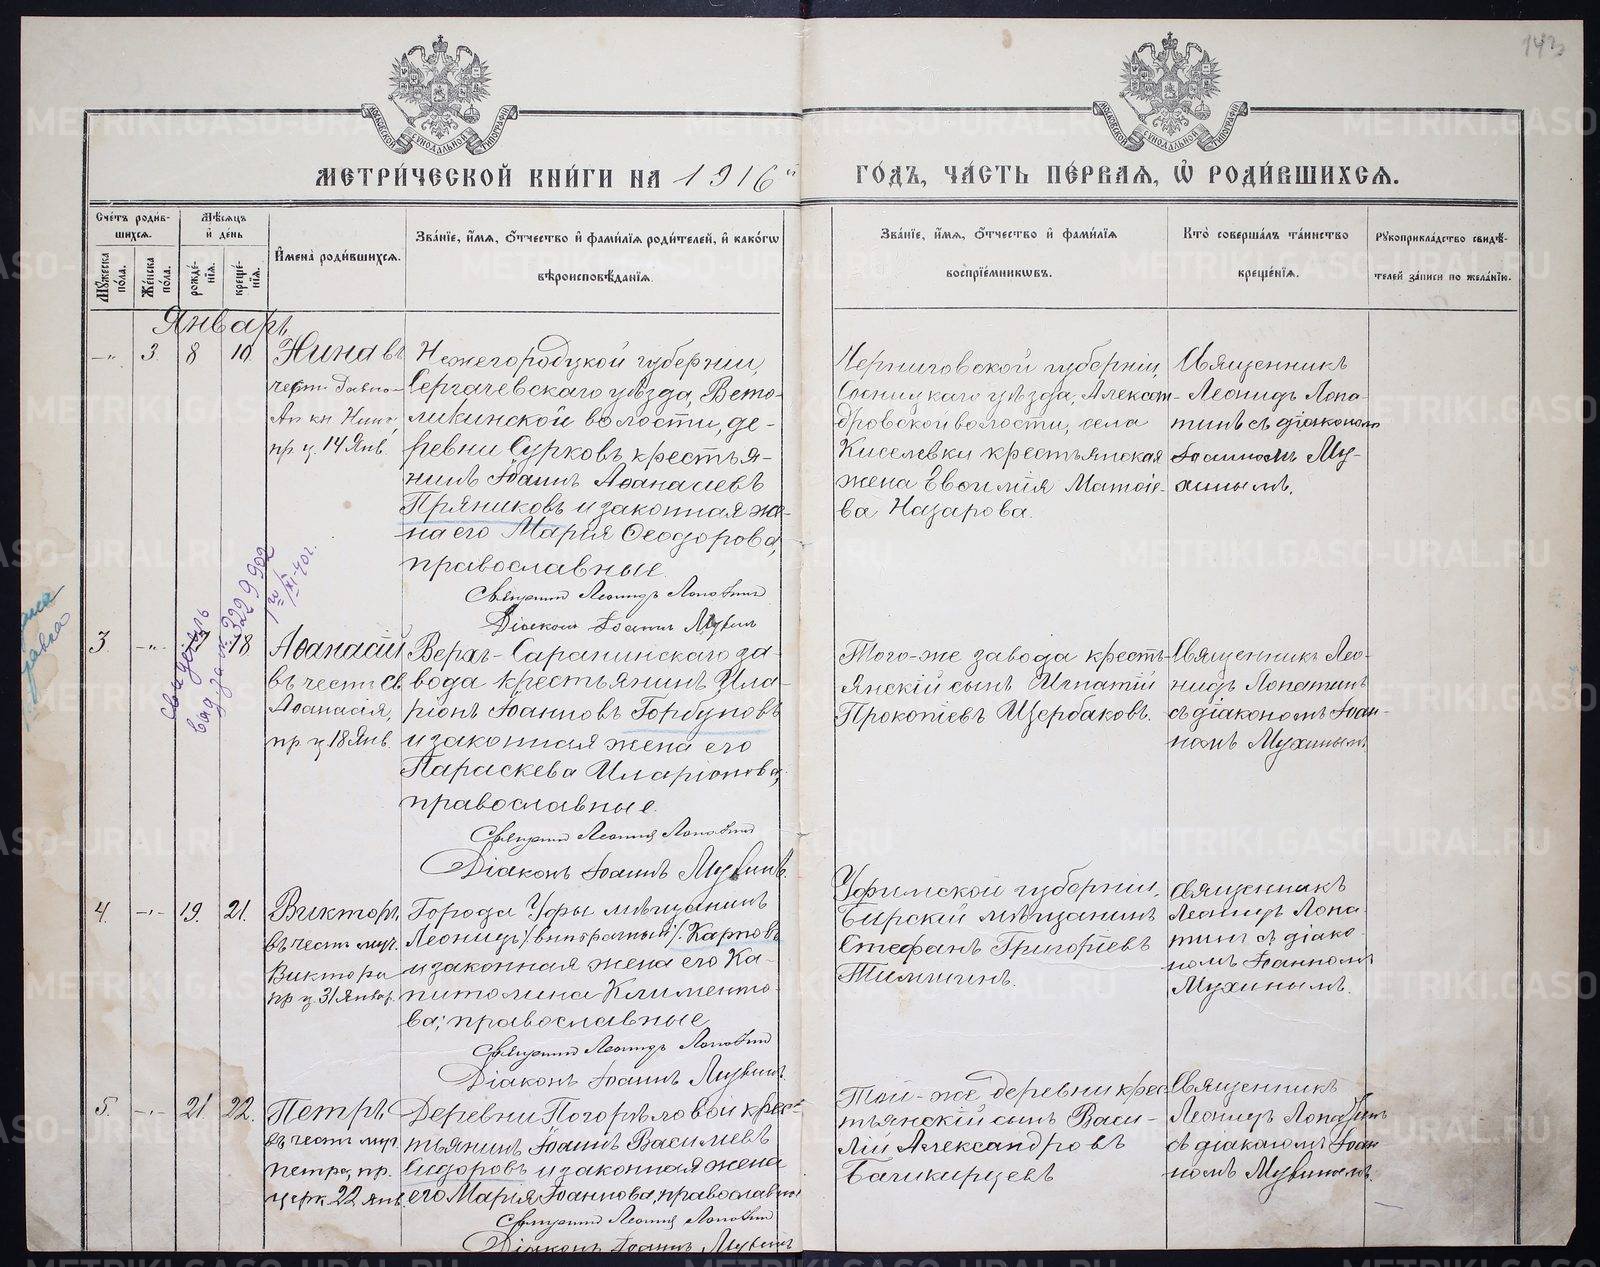 142
МОСКОВСКОЙ СѴНОДАЛЬНОЙ ТИПОГРАФІИ
МОСКОВСКОЙ СѴНОДАЛЬНОЙ ТИПОГРАФІИ
МЕТРИ́ЧЕСКОЙ КНИ́ГИ НА 1916й ГО́ДЪ, ЧА́СТЬ ПЕ́РВАЯ, Ѽ РОДИ́ВШИХСЯ.
Сче́тъ роди́в-
шихся.
Мꙋжеска по́ла.
Же́нска по́ла.
Мѣ́сяцъ
и҆ де́нь
рожде́-
нїя.
креще́-
нїя.
И҆мена̀ роди́вшихся.
Зва́нїе, и҆́мя, ѻ҆́тчество и҆ фами́лїя роди́телей, и҆ како́гѡ
вѣроисповѣ́данїя.
Зва́нїе, и҆́мя, ѻ҆́тчество и҆ фами́лїя
воспрїе́мникѡвъ.
Кто̀ соверша́лъ та́инство
креще́нїя.
Рꙋкоприкла́дство свидѣ́-
телей за́писи по жела́нїю.
Январь
—„ 3. 8 10. Нина въ
чести Равно-
Ап кн Нины,
пр. ц. 14 Янв.
Нижегородской губерніи,
Сергачевскаго уѣзда, Вето-
шкинской волости, де-
ревни Сурковъ, крестья-
нинъ Іоаннъ Аѳанасіевъ
Пряниковъ и законная же-
на его Марія Ѳеодорова,
православные.
Священник Леонидъ Лопатинъ
Діаконъ Іоаннъ Мухинъ
Черниговской губерніи,
Сосницкаго уѣзда, Алексан-
дровской волости, села
Киселевки крестьянская
жена Евѳимія Матѳіе-
ва Назарова.
Священникъ
Леонидъ Лопа-
тинъ съ діакономъ
Іоанномъ Му-
хинымъ.
3. -„- 18. Аѳанасій
въ честь св.
Аѳанасія,
пр. ц. 18 Янв.
свидѣтель
выд за № 329902
20/XI-40 г.
Верхъ-Сарапинскаго за-
вода крестьянинъ Ила-
ріонъ Іоанновъ Горбуновъ
и законная жена его
Параскева Иларіонова,
православные.
Священник Леонид Лопатин
Діаконъ Іоаннъ Мухинъ.
Того-же завода кресть-
янскій сынъ Игнатій
Прокопіевъ Щербаковъ.
Священникъ Лео-
нидъ Лопатинъ
съ діакономъ Іоан-
номъ Мухинымъ.
4. -„- 19. 21. Викторъ,
въ честь муч.
Виктора
пр. ц. 31 Январ.
Города Уфы мѣщанинъ
Леонидъ /внѣбрачный/ Карповъ
и законная жена его Ка-
питолина Клименто-
ва; православные
Священник Леонидъ Лопатин
Діаконъ Іоаннъ Мухинъ.
Уфимской губерніи,
Бирскій мѣщанинъ
Стефанъ Григоріевъ
Священникъ
Леонидъ Лопа-
тинъ съ діако-
номъ Іоанномъ
Мухинымъ.
5. -„- 21. 22. Петръ,
въ честь муч.
Петра, пр.
церк. 22 янв.
Деревни Погорѣловой крес-
тьянинъ Іоаннъ Василіевъ
Сидоровъ и законная жена
его Марія Іоаннова, православные
Священник Леонид Лопатин
Діаконъ Іоаннъ Мухинъ
Той-же деревни крес-
тьянскій сынъ Васи-
лій Александровъ
Башкирцевъ
Священникъ
Леонидъ Лопатинъ
съ діакономъ Іоан-
номъ Мухинымъ.
METRIKI.GASO-URAL.RU